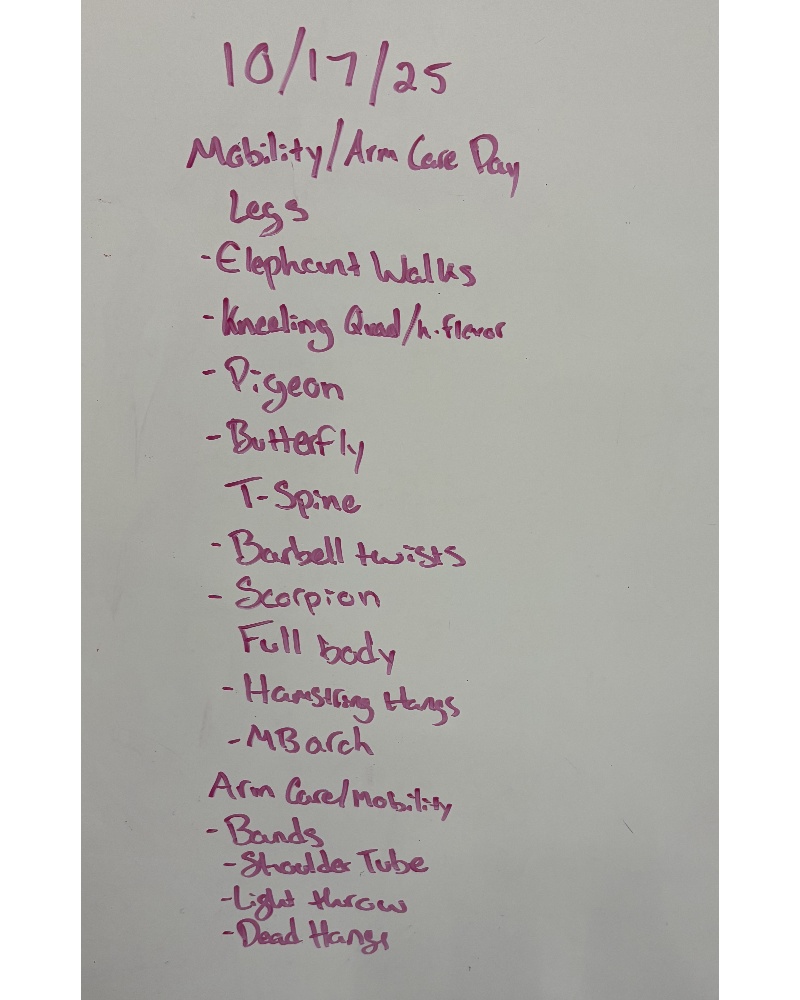 10/17/25
Mobility/Arm Care Day
Legs
-Elephant Walks
-Kneeling Quad/h.flexor
-Pigeon
-Butterfly
T-Spine
-Barbell twists
-Scorpion
Full body
-Hamstring Hangs
-MB arch
Arm Care/mobility
-Bands
-Shoulder Tube
-Light throw
-Dead Hangs